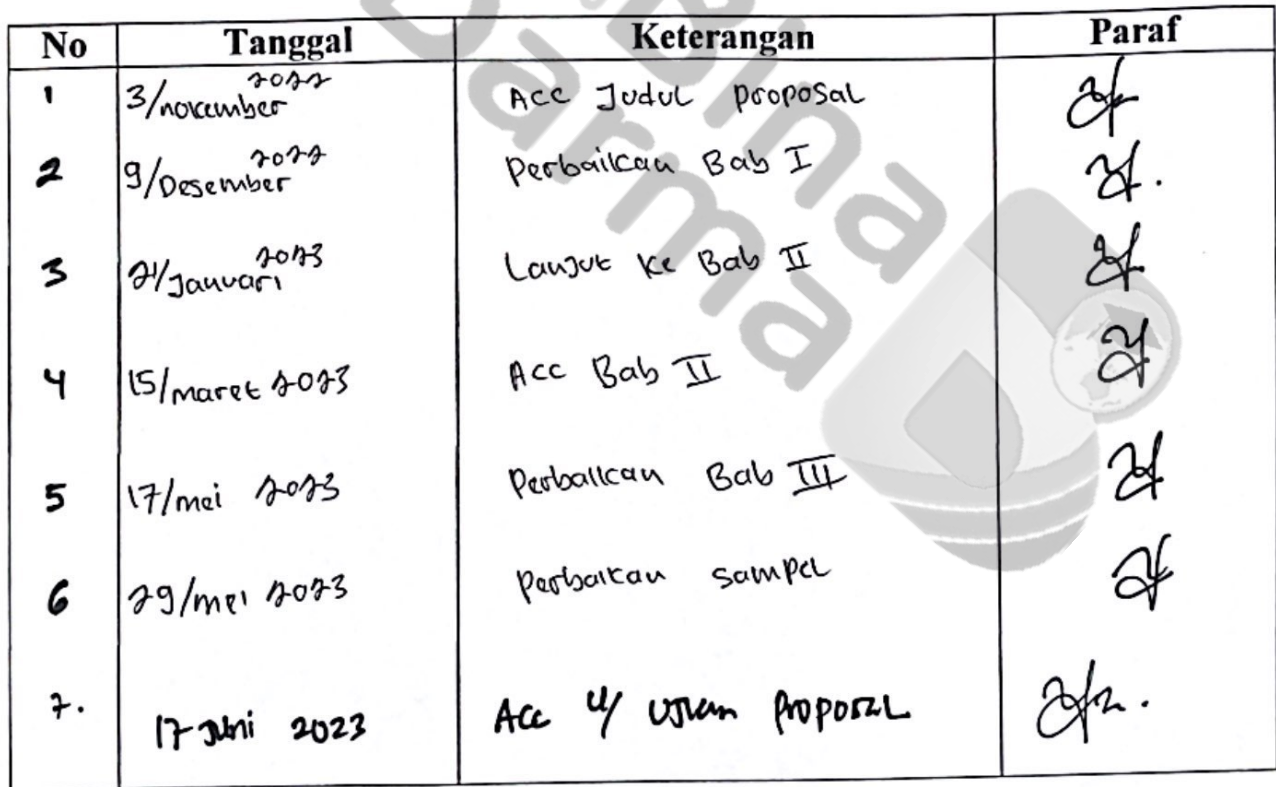 Bina Darma
No Tanggal Keterangan Paraf
1 3/november 2022 Acc Judul proposal
2 9/Desember 2022 Perbaikan Bab I
3 21/Januari 2023 Lanjut ke Bab II
4 15/maret 2023 Acc Bab II
5 17/mei 2023 Perbaikan Bab III
6 29/mei 2023 Perbaikan sampel
7. 17 Juni 2023 Acc u/ Ujian Proposal